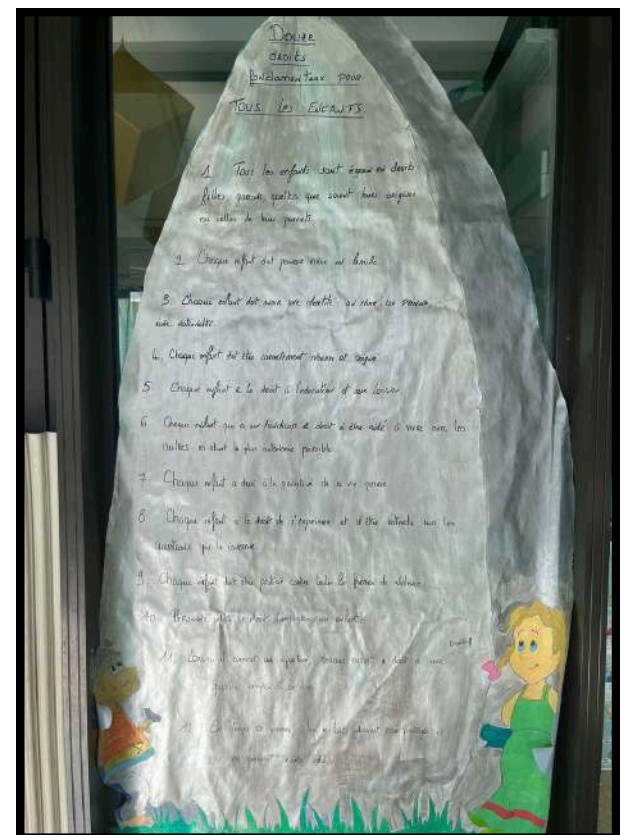 Douze
droits
fondamentaux pour
TOUS LES ENFANTS
1 Tous les enfants sont égaux en droits
filles, garçons, quelles que soient leurs origines
ou celles de leurs parents.
2 Chaque enfant doit pouvoir vivre en famille
3. Chaque enfant doit avoir une identité un nom, un prénom,
une nationalité
4. Chaque enfant doit être correctement nourri et soigné
5 Chaque enfant a le droit à l'éducation et aux loisirs
6 Chaque enfant qui a un handicap a droit à être aidé à vivre avec les
autres en étant le plus autonome possible
7 Chaque enfant a droit à la protection de sa vie privée
8 Chaque enfant a le droit de s'exprimer et d'être entendu sur les
questions qui le concerne
9. Chaque enfant doit être protégé contre toutes les formes de violence
10. Personne n'a le droit d'exploiter un enfant
11. Lorsqu'il commet une infraction chaque enfant a droit à une
12 En temps de guerre les enfants doivent être protégés